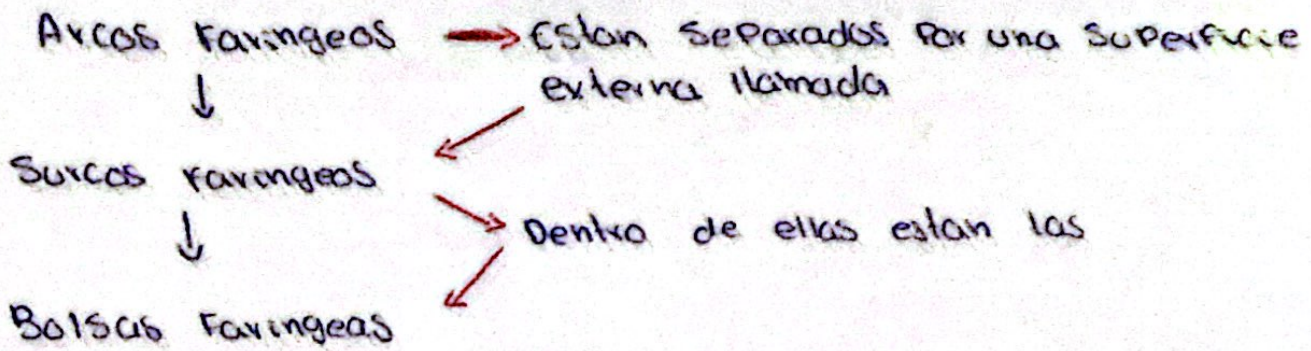 Arcos Faringeos → Estan separados por una superficie
externa llamada
Surcos Faringeos
Dentro de ellas estan las
Bolsas Faringeas